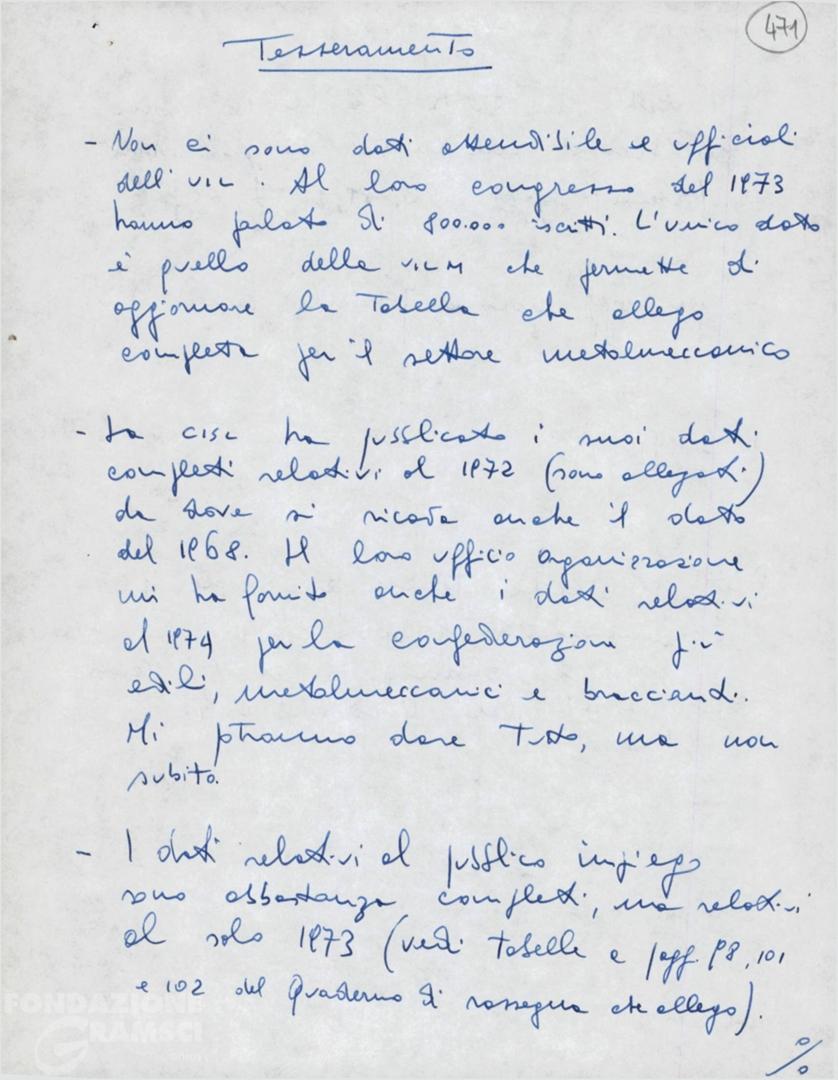 471
Tesseramento
- Non ci sono dati attendibile e ufficiali
dell'UIL. Al loro congresso del 1973
hanno parlato di 800.000 iscritti. L'unico dato
è quello della UILM che permette di
aggiornare la Tabella che allego
completa per il settore metalmeccanico
- La CISL ha pubblicato i suoi dati
completi relativi al 1972 (sono allegati)
da dove si ricava anche il dato
del 1968. Il loro ufficio organizzazione
mi ha fornito anche i dati relativi
al 1974 per la confederazione più
edili, metalmeccanici e braccianti.
Mi potranno dare tutto, ma non
subito.
- I dati relativi al pubblico impiego
sono abbastanza completi, ma relativi
al solo 1973 (vedi tabelle a pagg. 98, 101
e 102 del Quaderno di rassegna che allego).
FONDAZIONE
GRAMSCI